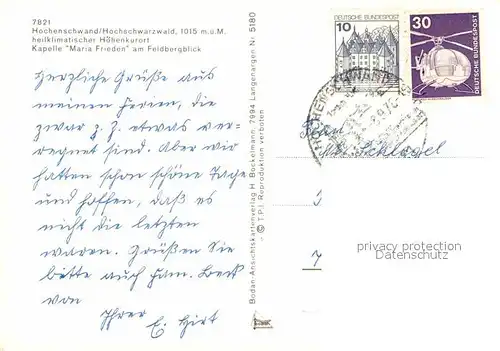 7821
Hochenschwand/Hochschwarzwald, 1015 m.ü.M.
heilklimatischer Höhenkurort
Kapelle "Maria Frieden" am Feldbergblick
Herzliche Grüße aus
meinen Ferien, die
zwar z. Z. etwas ver-
regnet sind. Aber wir
hatten schon schöne Tage
und hoffen, daß es
nicht die letzten
waren. Grüßen Sie
bitte auch Fam. Beck
von
Ihrer
E. Hirt
Bodan-Ansichtskartenverlag H. Bockelmann, 7994 Langenargen Nr. 5180
© T.P.I. Reproduktion verboten
10
DEUTSCHE BUNDESPOST
30
DEUTSCHE BUNDESPOST
HÖCHENSCHWAND
Schlagel
privacy protection
Datenschutz